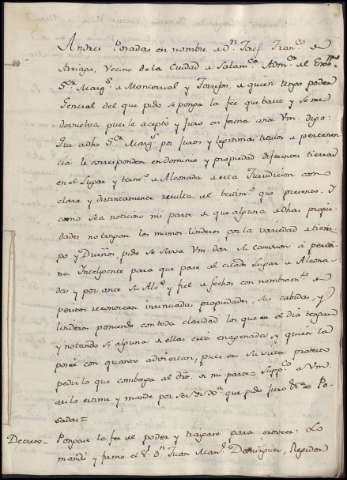 Andres Posadas en nombre de Dn. Josef Franco. de
Arriaga, Vecino de la Ciudad de Salamca. Admor. del Exmo.
Sor. Marqs. de Monreal, y de quien tengo poder
General del que pido se ponga la fee que baste y se me
debuelva, pues le acepto y Juro en forma ante Vm. digo:
Que a dho Sor. Marqs. por Justos y legitimos titulos
le corresponden en dominio y propiedad diferentes tierras
en el Lugar y termo. de de esta Jurisdicion como
clara y distintamente resulta del testimo. que presento. Y
como sea noticioso mi parte de que algunas de dhas propie
dades no tengan los mismos linderos por la variedad de tiem
po y Dueños, pido se sirva Vm. dar su comision a persona
Inteligente para que pase al citado Lugar de
y por ante Ssno. y fiel de fechos con nombramto. de
peritos reconozcan propiedades, su cabida, y
linderos poniendo con toda claridad los que en el dia tengan
y notando si alguna de ellas está enagenada, y quien la
posee con quanto advirtieren, pues en su vista protexto
pedir lo que combenga al dro. de mi parte: Suppco. a Vm.
asi lo estime y mande por ser de Jusa. que pido Juro &a. Po
sadas =
Decreto. Pongase la fee del poder y traigase para
mandó y firmó el Sr. Dn. Juan Manl. Dominguez, Regidor